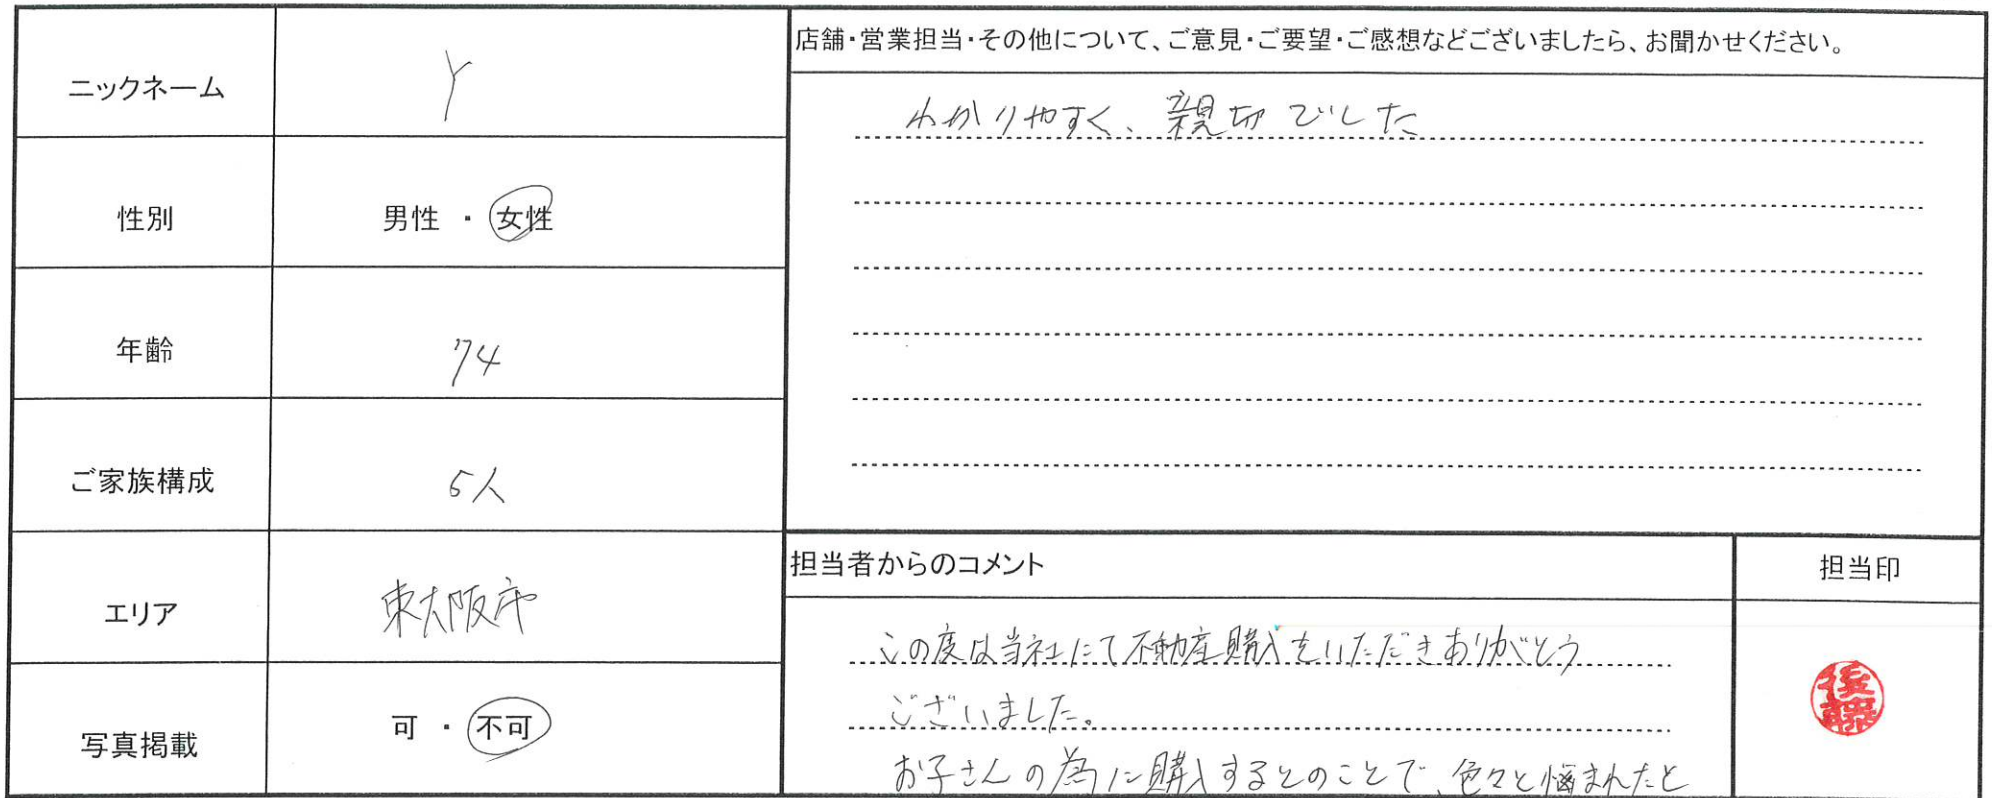 ニックネーム Y
性別 男性 ・ 女性
年齢 74
ご家族構成 5人
エリア 東大阪市
写真掲載 可 ・ 不可
店舗・営業担当・その他について、ご意見・ご要望・ご感想などございましたら、お聞かせください。
わかりやすく、親切でした
担当者からのコメント
この度は当社にて不動産購入をいただきありがとう
ございました。
お子さんの為に購入するとのことで、色々と悩まれたと
担当印
後藤